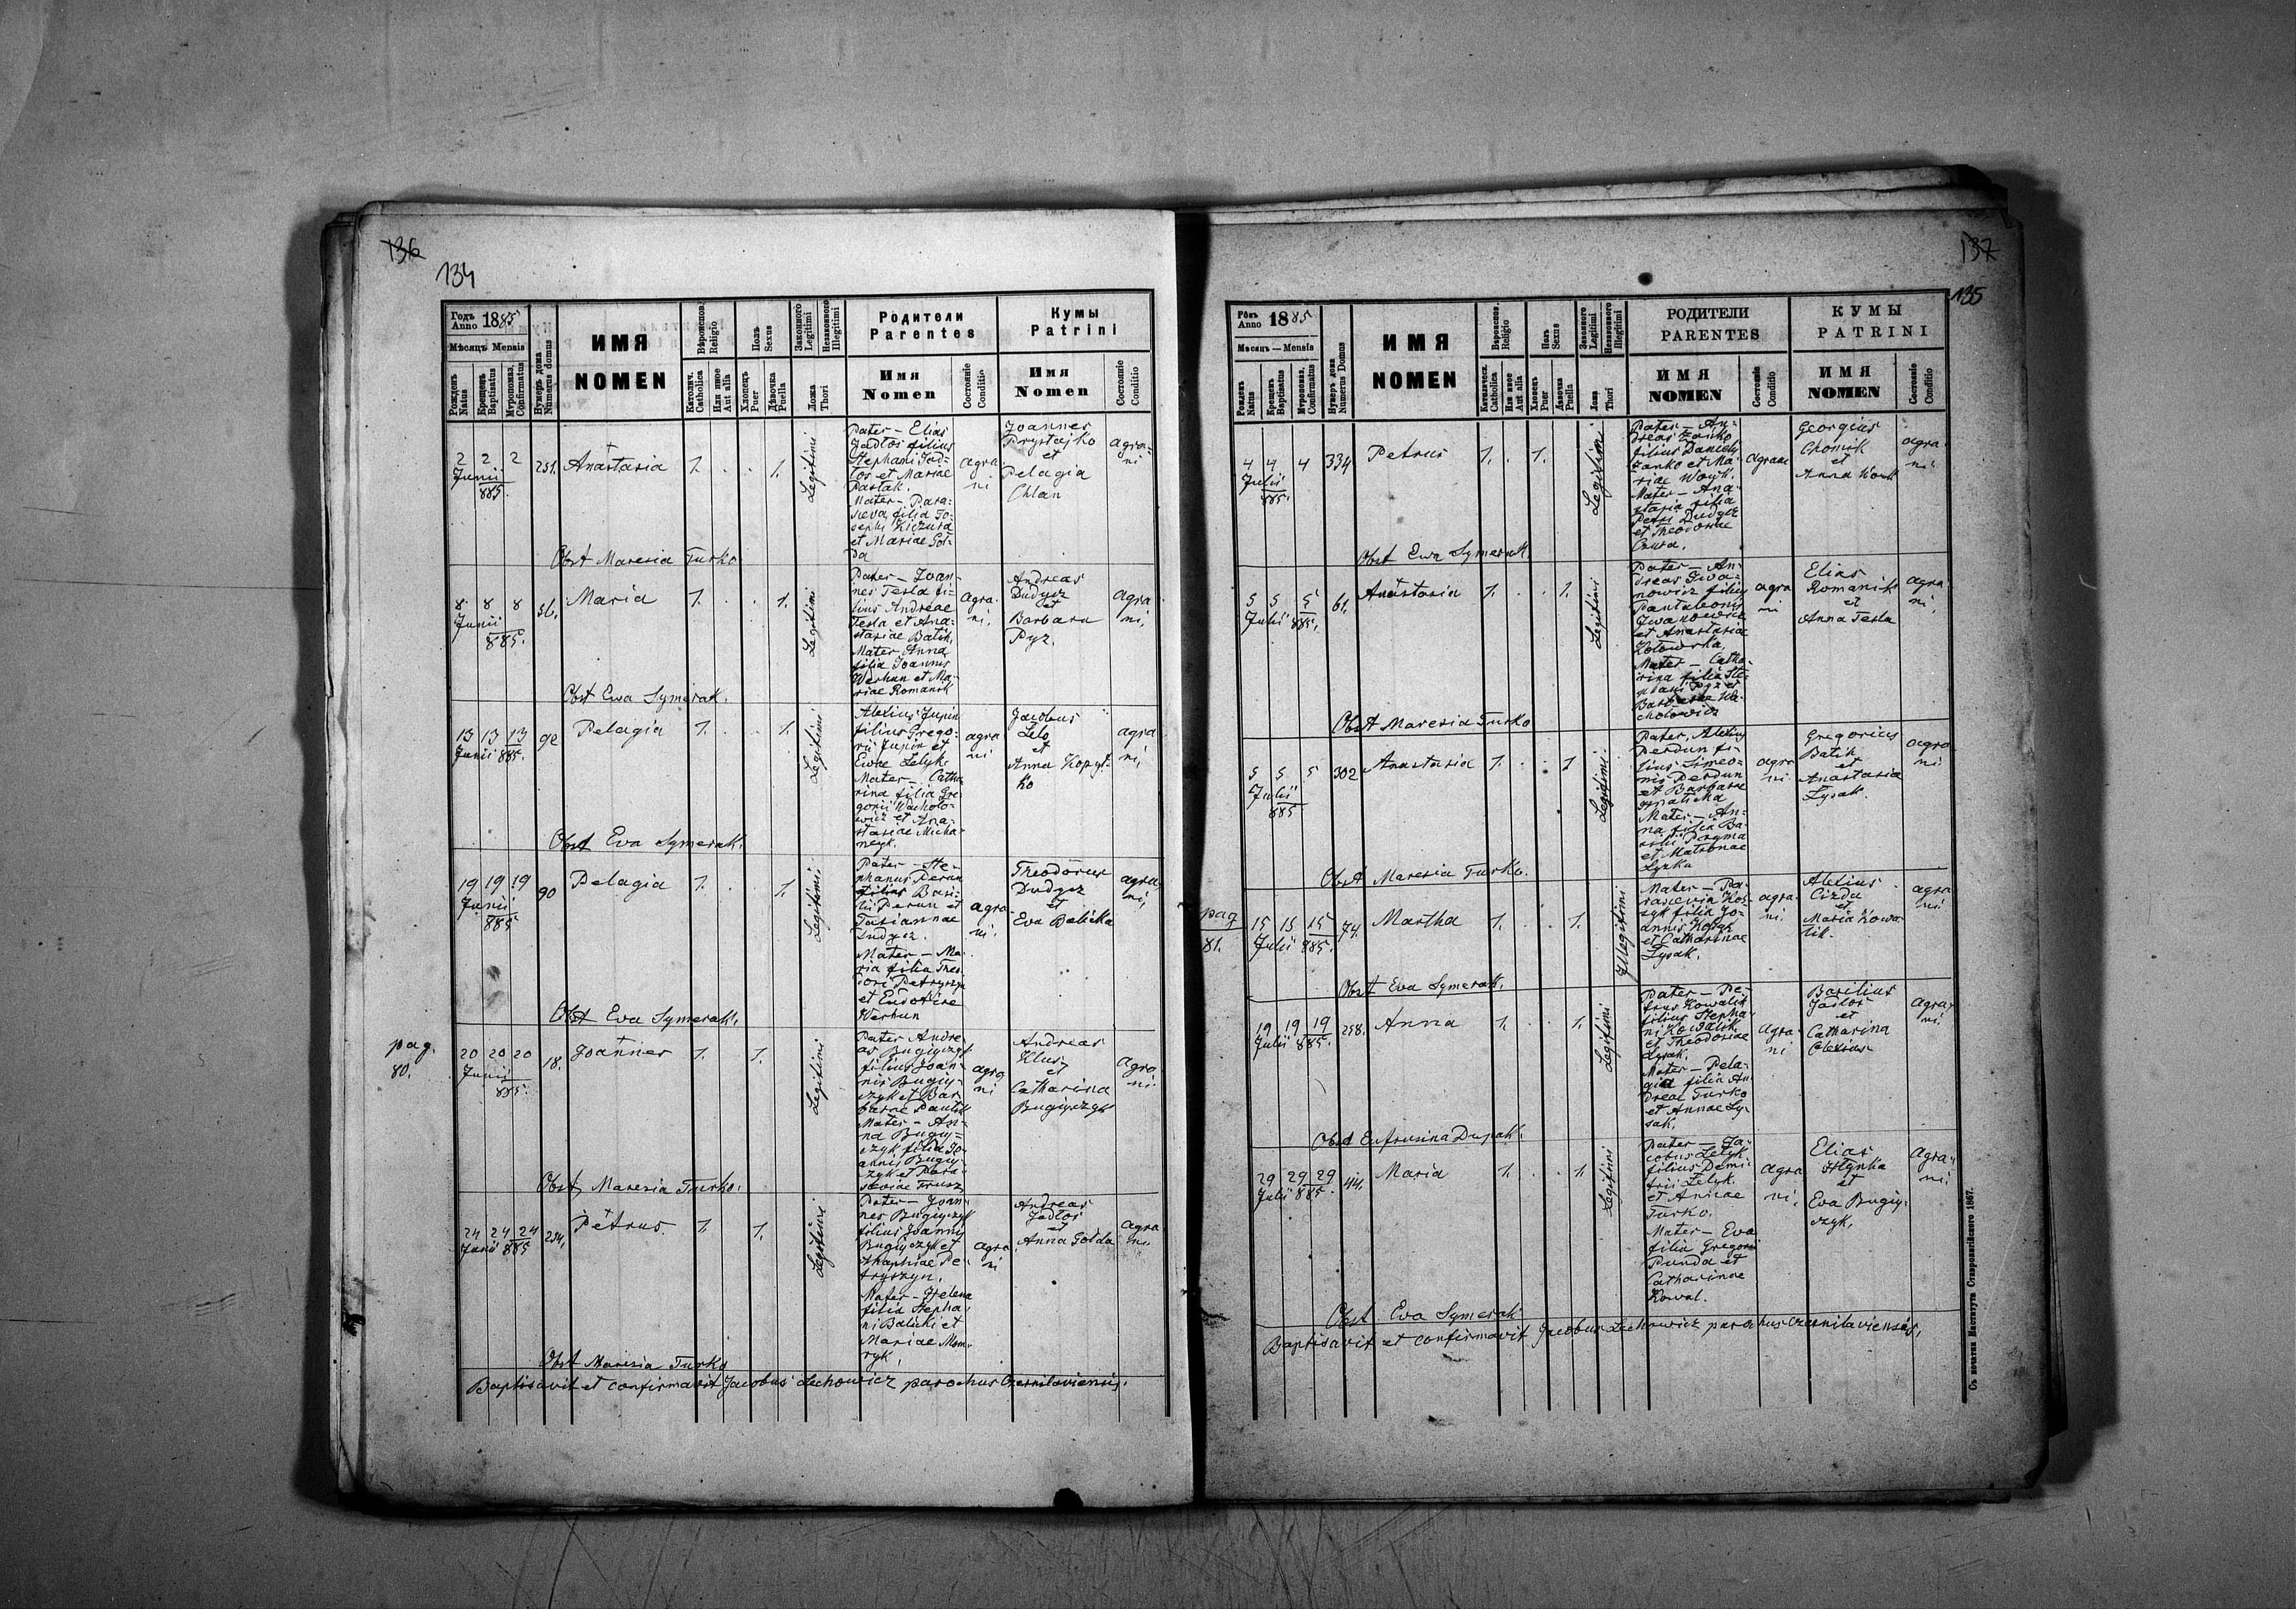 136
134
Годъ Anno 1885
Мѣсяцъ Mensis
Рожденъ Natus
Крещенъ Baptisatus
Мѵропомаз. Confirmatus
Нумеръ дома Numerus domus
ИМЯ
NOMEN
Вѣроиспов. Religio
Католич. Catholica
Или иное Aut alia
Полъ Sexus
Хлопецъ Puer
Дѣвочка Puella
Законного Legitimi
Незаконного Illegitimi
Ложа Thori
Родители
Parentes
Имя
Nomen
Состояніе Conditio
Кумы
Patrini
Имя
Nomen
Состояніе Conditio
2 2 2
Junii
885.
251.
Anastasia
1. . . 1.
Legitimi
Pater - Elias
Jadłos filius
Stephani Jad-
łos et Mariae
Pastak.
Mater - Para-
sceva, filia Jo-
sephi Kiczura
et Mariae Goł-
da
agra-
ni
Joannes
Prystajko
et
Pelagia
Chlan
agra-
ni
Obst Maresia Turko
8 8 8
Junii
885.
36.
Maria
1. . . 1.
Legitimi
Pater - Joan-
nes Tesla fi-
lius Andreae
Tesla et Ana-
stasiae Batik,
Mater Anna
filia Joannis
Werhun et Ma-
riae Romanik
agra-
ni,
Andreas
Dudycz
et
Barbara
Pyz.
agra
ni,
Obst Ewa Symerak.
13 13 13
Junii 885.
92
Pelagia
1. . . 1.
Legitimi
Alexius Jupin
filius Grego-
rii Jupin et
Ewae Lelyk.
Mater - Catha
rina filia Gre-
gorii Wacholo-
wicz et Ana-
stasiae Micha-
neyk.
agra
ni
Jacobus
Lelo
et
Anna Kopyt-
ko
agra
ni,
Obst Eva Symerak.
19 19 19
Junii
885
90
Pelagia
1. . . 1.
Legitimi.
Pater - Ste-
phanus Perun
filius Basi-
lii Perun et
Tatiannae
Dudycz.
Mater - Ma-
ria filia Theo
dori Petryszyn
et Eudoxiae
Werhun
agra
ni.
Theodorus
Dudycz
et
Eva Balicka
agra
ni,
Obst Eva Symerak.
pag.
80.
20 20 20
Junii
885.
18.
Joannes
1. . 1.
Legitimi
Pater Andre-
as Bugiyczyk
filius Joan-
nis Bugiy-
czyk et Bar-
barae Pawlik
Mater - An-
na Bugiy-
czyk filia Jo-
annis Bugiy-
czyk et Para-
sceviae Trusz
agra
ni
Andreas
Klus
et
Catharina
Bugiyczyk
Agra
ni.
Obst, Maresia Turko.
24 24 24
Junii 885
254,
Petrus.
1. . 1.
Legitimi
Pater - Joan-
nes Bugiyczyk
filius Joannis
Bugiyczyk et
Ahaphiae Pe-
tryszyn.
Mater - Helena
filia Stepha-
ni Balicki et
Mariae Mom-
ryk,
agra
ni
Andreas
Jadłos
et
Anna Gołda
agra
ni.
Obst Maresia Turko
Baptisavit et confirmavit Jacobus Lechowicz parochus Czernilaviensis.
137
135
Рôкъ Anno 1885
Мѣсяцъ — Mensis
Рожденъ Natus
Крещенъ Baptisatus
Мѵропомаз. Confirmatus
Нумеръ дома Numerus Domus
ИМЯ
NOMEN
Вѣроиспов. Religio
Католическ. Catholica
Или иное Aut alia
Полъ Sexus
Хлопецъ Puer
Дѣвочка Puella
Законного Legitimi
Незаконного Illegitimi
Ложа Thori
РОДИТЕЛИ
PARENTES
ИМЯ
NOMEN
Состояніе Conditio
КУМЫ
PATRINI
ИМЯ
NOMEN
Состояніе Conditio
4 4 4
Julii
885.
334
Petrus
1. . 1.
Legitimi
Pater - An-
dreas Zańko
filius Danielis
Zanko et Ma-
riae Woyk.
Mater - Ana-
stasia filia
Petri Dudycz
et Theodorae
Czura.
agrani
Georgius
Chomik
et
Anna Wowk
agra-
ni.
Obst Ewa Symerak.
5 5 5
Julii 885.
61.
Anastasia
1. . . 1.
Legitimi
Pater - An-
dreas Iwa-
nowicz filius
Pantaleonis
Iwanowicz
et Anastasia
Kotowska
Mater - Catha-
rina filia Ste-
phani Pyz et
Barbarae Wa-
cholowicz
agra
ni
Elias
Romanik
et
Anna Tesla
agra
ni,
Obst Maresia Turko
5 5 5
Julii
885
302
Anastasia
1. . . 1
Legitimi.
Pater, Alexius
Perdun fi-
lius Simeo-
nis Perdun
et Barbarae
Hnaticka
Mater - An-
na filia Ba-
silii Pryma
et Matronae
Lyzka
agra
ni
Gregorius
Batik
et
Anastasia
Łysak.
agra
ni
Obst Maresia Turko.
pag
81.
15 15 15
Julii 885.
74.
Martha
1. . . 1.
Illegitimi
Mater - Pa-
rascevia Kos-
zyk filia Jo-
annis Koszyk
et Catharinae
Łysak.
agra-
ni
Alexius
Cizda
et
Maria Kowa-
lik.
agra
ni
Obst Eva Symerak.
19 19 19
Julii 885.
258.
Anna
1. . . 1.
Legitimi
Pater - Pe-
trus Kowalik
filius Stepha-
ni Kowalik
et Theodosiae
Łysak.
Mater - Pela-
gia filia An-
dreae Turko
et Annae Ły-
sak.
agra-
ni
Basilius
Jadłos
et
Catharina
Olexiur
agra-
ni,
Obst Eufrusina Dupak.
29 29 29
Julii 885.
44.
Maria
1. . . 1
Legitimi
Pater - Ja-
cobus Lelyk
filius Demi-
trii Lelyk.
et Annae
Turko.
Mater - Eva
filia Gregorii
Punda et
Catharinae
Kowal.
agra
ni.
Elias
Hlynka
et
Eva Bugiy-
czyk,
agra-
ni.
Obst Eva Symerak
Baptisavit et confirmavit Jacobus Lechowicz parochus Czernilaviensis,
Съ печатни Института Ставропигійского 1867.